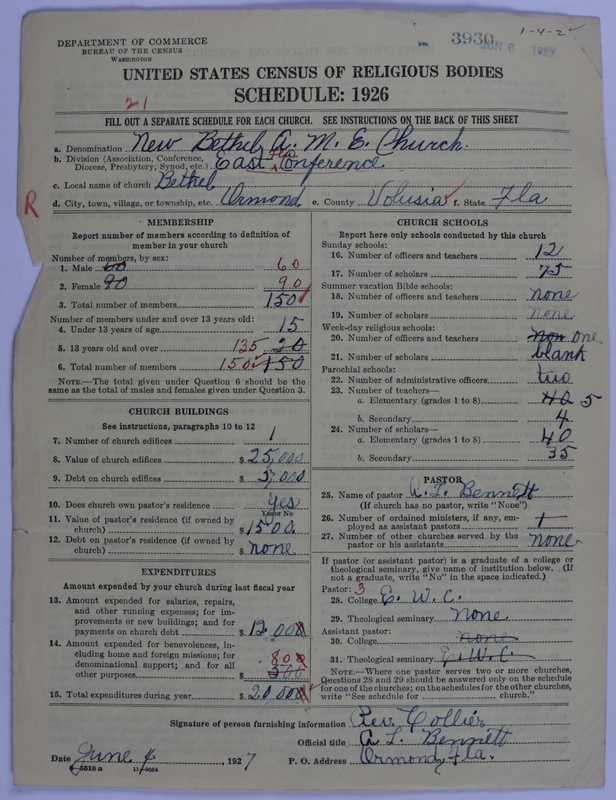 1-4-2
DEPARTMENT OF COMMERCE
BUREAU OF THE CENSUS
WASHINGTON
3930 JUN 6 1927
UNITED STATES CENSUS OF RELIGIOUS BODIES
SCHEDULE: 1926
21
FILL OUT A SEPARATE SCHEDULE FOR EACH CHURCH. SEE INSTRUCTIONS ON THE BACK OF THIS SHEET
a. Denomination New Bethel A. M. E. Church.
b. Division (Association, Conference, Diocese, Presbytery, Synod, etc.) East Fla Conference
c. Local name of church Bethel
d. City, town, village, or township, etc. Ormond e. County Volusia f. State Fla
R
MEMBERSHIP
Report number of members according to definition of
member in your church
Number of members, by sex:
1. Male 60 60
2. Female 90 90
3. Total number of members 150
Number of members under and over 13 years old:
4. Under 13 years of age 15
5. 13 years old and over 135 20
6. Total number of members 150 150
NOTE.—The total given under Question 6 should be the
same as the total of males and females given under Question 3.
CHURCH BUILDINGS
See instructions, paragraphs 10 to 12
7. Number of church edifices 1
8. Value of church edifices $ 25,000
9. Debt on church edifices $ 5,000
10. Does church own pastor's residence Yes
Yes or No
11. Value of pastor's residence (if owned by
church) $ 1500.
12. Debt on pastor's residence (if owned by
church) $ none
EXPENDITURES
Amount expended by your church during last fiscal year
13. Amount expended for salaries, repairs,
and other running expenses; for im-
provements or new buildings; and for
payments on church debt $ 12,000
14. Amount expended for benevolences, in-
cluding home and foreign missions; for
denominational support; and for all
other purposes $ 800 500
15. Total expenditures during year $ 20,000
CHURCH SCHOOLS
Report here only schools conducted by this church
Sunday schools:
16. Number of officers and teachers 12
17. Number of scholars 75
Summer vacation Bible schools:
18. Number of officers and teachers none
19. Number of scholars none
Week-day religious schools:
20. Number of officers and teachers non one
21. Number of scholars blank
Parochial schools:
22. Number of administrative officers two
23. Number of teachers—
a. Elementary (grades 1 to 8) 40 5
b. Secondary 4
24. Number of scholars—
a. Elementary (grades 1 to 8) 40
b. Secondary 35
PASTOR
25. Name of pastor A. L. Bennett
(If church has no pastor, write "None")
26. Number of ordained ministers, if any, em-
ployed as assistant pastors 1
27. Number of other churches served by the
pastor or his assistants none
If pastor (or assistant pastor) is a graduate of a college or
theological seminary, give name of institution below. (If
not a graduate, write "No" in the space indicated.)
Pastor: 3
28. College E. W. C.
29. Theological seminary None
Assistant pastor:
30. College none
31. Theological seminary E. W. C.
NOTE.—Where one pastor serves two or more churches,
Questions 28 and 29 should be answered only on the schedule
for one of the churches; on the schedules for the other churches,
write "See schedule for church."
Signature of person furnishing information Rev. Collier
Official title A L. Bennett
Date June 6, 1927 P. O. Address Ormond, Fla.
8—5518 a 11—9064